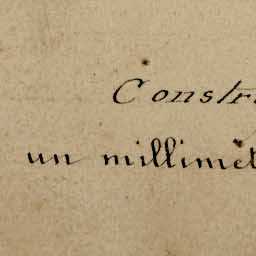 Constr
un millimèt